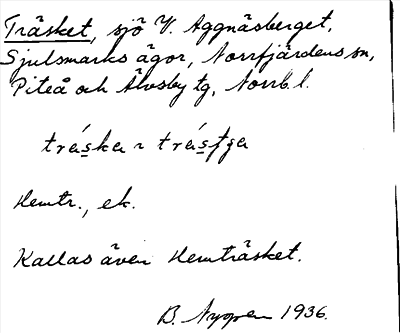 Träsket, sjö V. Aggnäsberget,
Sjulsmarks ägor, Norrfjärdens sn,
Piteå och Älvsby tg, Norrb. l.
Hemtr., ek.
Kallas även Hemträsket.
B. Nygren 1936.